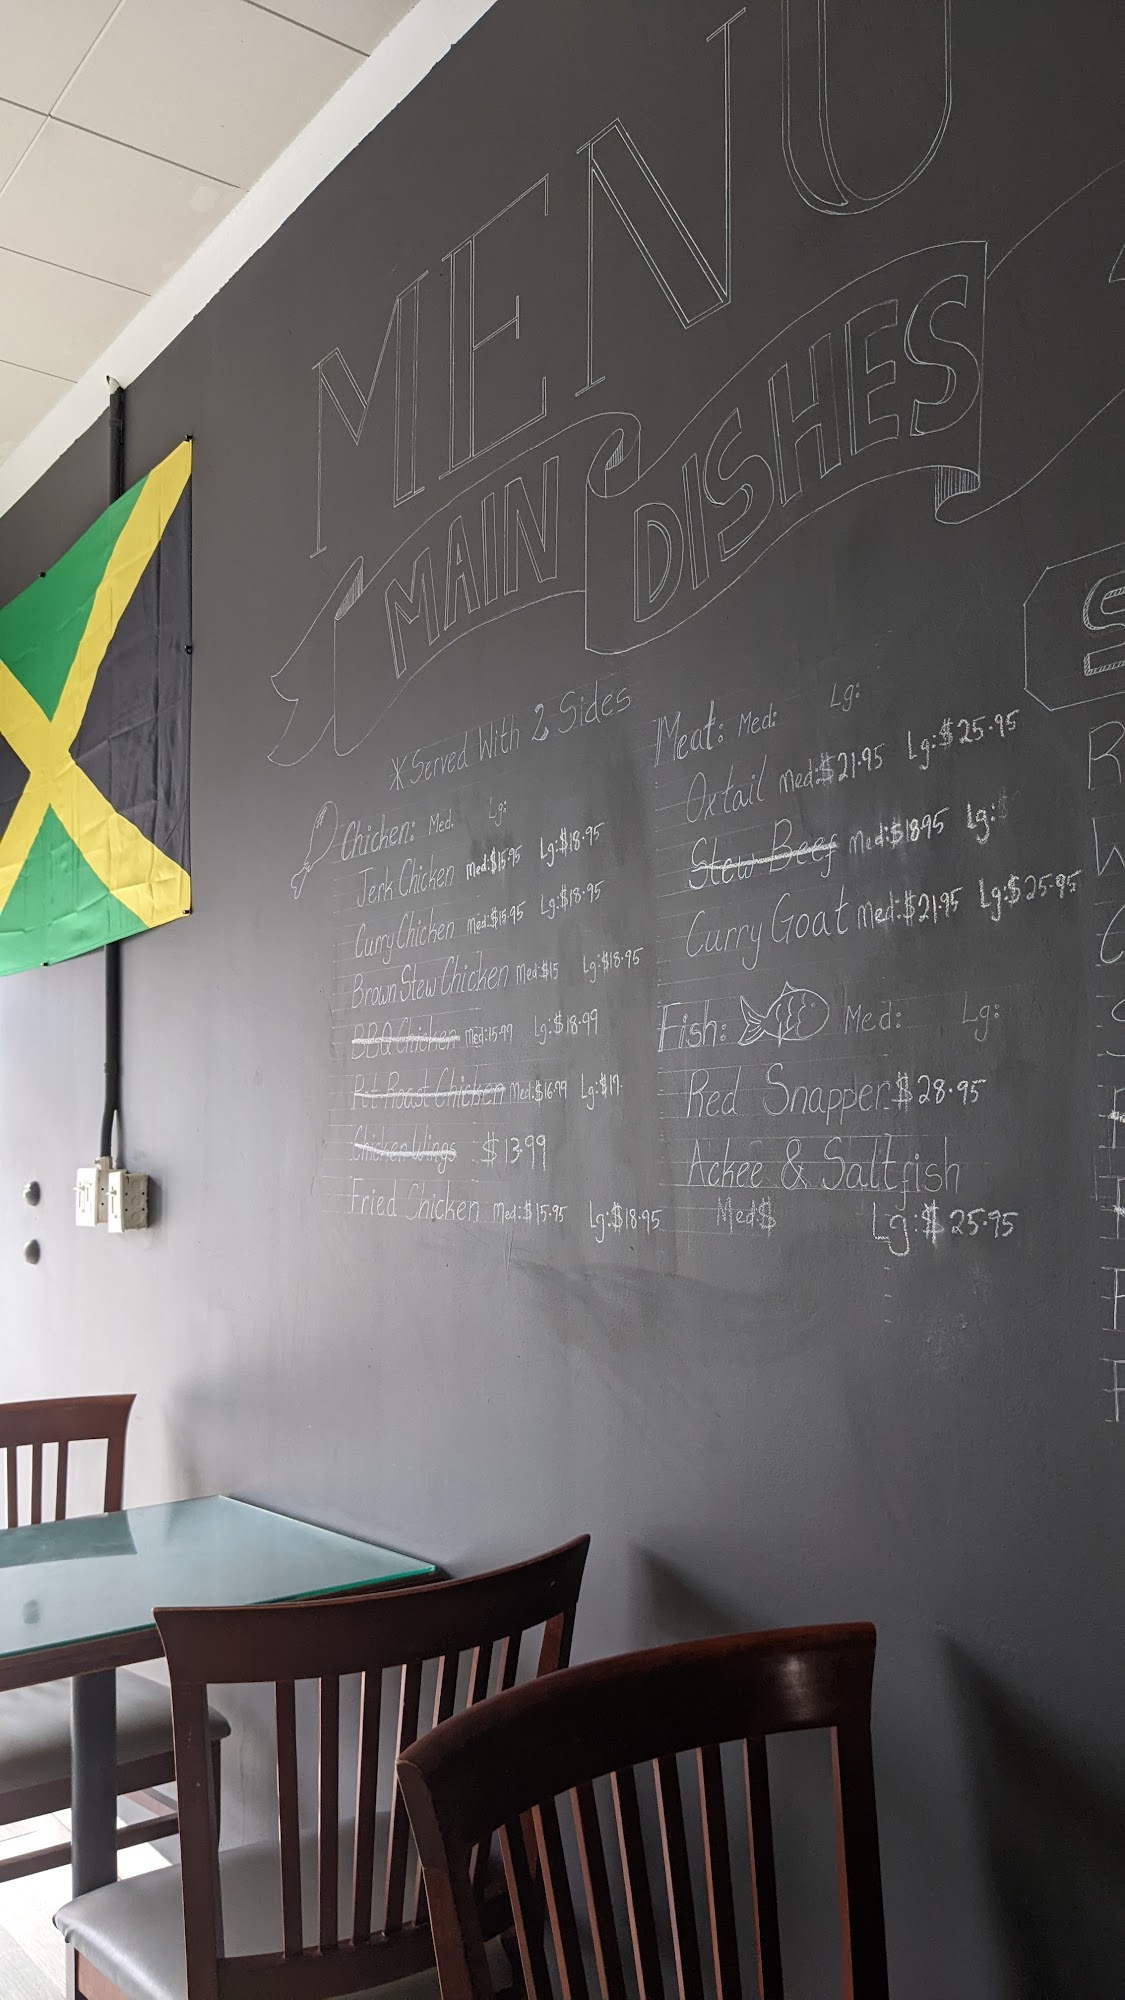 MENU
MAIN DISHES
*Served With 2 Sides
Chicken: Med. Lg:
Jerk Chicken Med:$15.95 Lg:$18.95
Curry Chicken Med:$15.95 Lg:$18.95
Brown Stew Chicken Med:$15 Lg:$18.95
BBQ Chicken Med:15.99 Lg:$18.99
Pot Roast Chicken Med:$16.99 Lg:$17.
Chicken Wings $13.99
Fried Chicken Med:$15.95 Lg:$18.95
Meat: Med: Lg:
Oxtail Med:$21.95 Lg:$25.95
Stew Beef Med:$18.95 Lg:
Curry Goat Med:$21.95 Lg:$25.95
Fish: Med: Lg:
Red Snapper $28.95
Ackee & Saltfish
Med$ Lg:$25.95